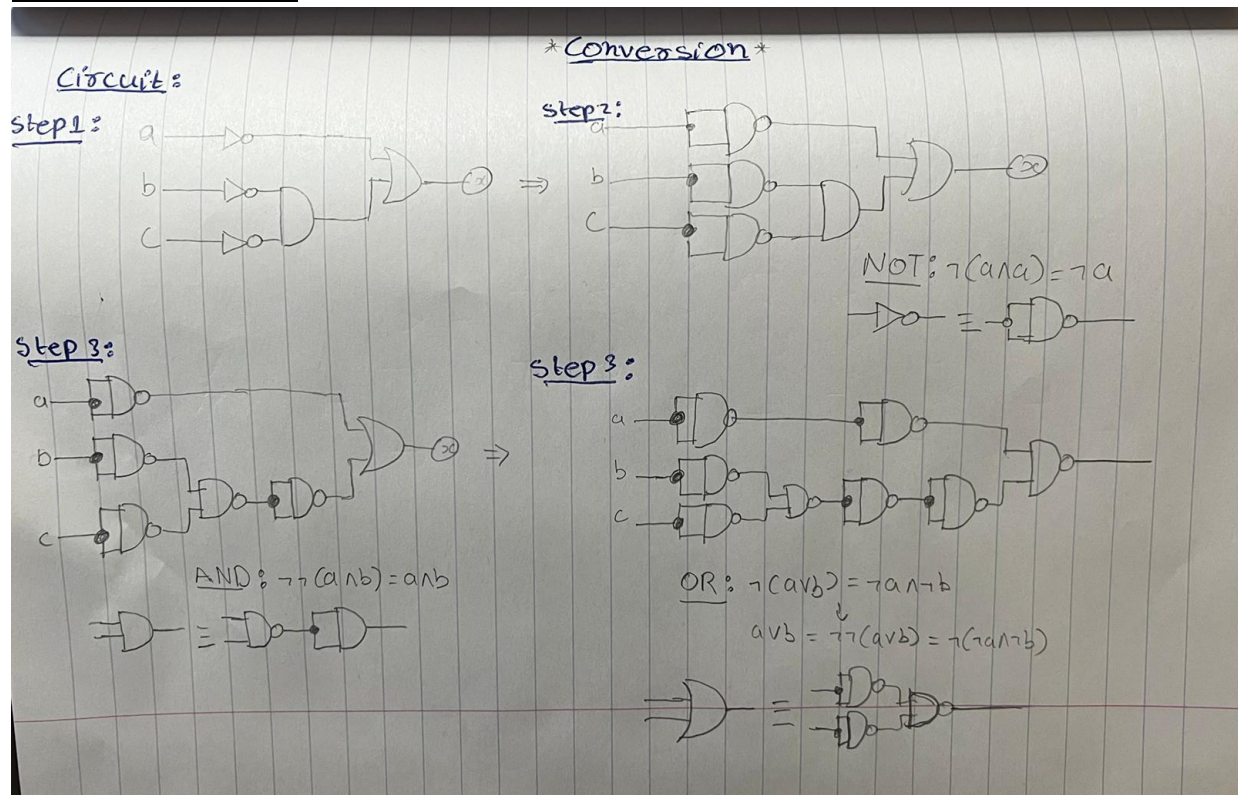 *Conversion*
Circuit:
Step1:
a
b
c
x
⇒
Step2:
a
b
c
x
NOT: ¬(a∧a)=¬a
≡
Step 3:
a
b
c
x
⇒
AND: ¬¬(a∧b)=a∧b
≡
Step 3:
a
b
c
OR: ¬(a∨b)=¬a∧¬b
↓
a∨b = ¬¬(a∨b) = ¬(¬a∧¬b)
≡